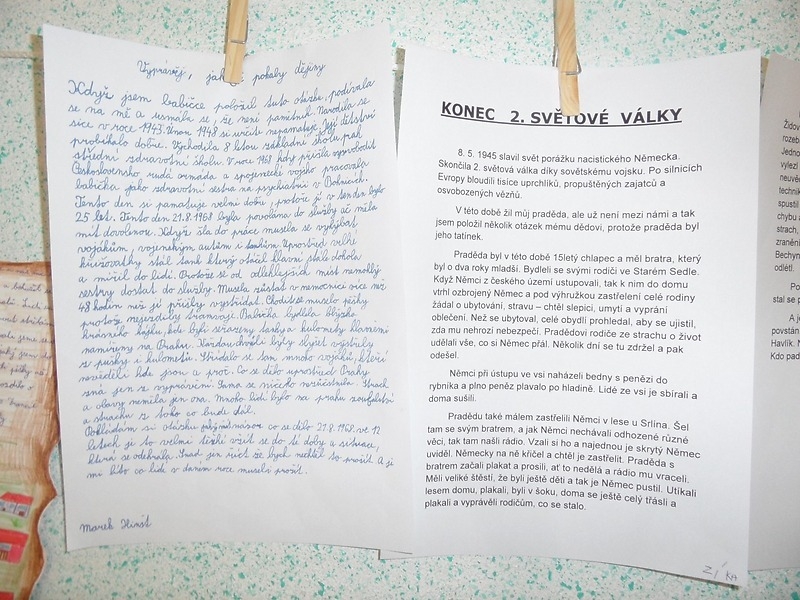 Vyprávěj, jak šly dějiny
Když jsem babičce položil tuto otázku, podívala
se na mě a usmála se, že není pamětník. Narodila se
sice v roce 1943. Únor 1948 si určitě nepamatuje. Její dětství
probíhalo dobře. Vychodila 8 letou základní školu, pak
střední zdravotní školu. V roce 1968 kdy přišla vysvobodit
Československo rudá armáda a spojenecké vojska pracovala
babička jako zdravotní sestra na psychiatrii v Bohnicích.
Tento den si pamatuje velmi dobře, protože jí v ten den bylo
25 let. Tento den 21.8.1968 byla povolána do služby ač měla
mít dovolenou. Když šla do práce musela se vyhýbat
vojákům, vojenským autům i tankům. Uprostřed velké
křižovatky stál tank který otáčel hlavní stále dokola
a mířil do lidí. Protože se od odlehlejších míst nemohly
sestry dostat do služby. Musela zůstat v nemocnici více než
48 hodin než jí přišly vystřídat. Chodit se muselo pěšky
protože nejezdily tramvaje. Babička bydlela blízko
krásného hájku, kde byli seřazeny tanky a kulomety hlavněmi
namířeny na Prahu. Každou chvíli byly slyšet výstřely
z pušky i kulometu. Střídalo se tam mnoho vojáků, kteří
nevěděli kde jsou a proč. Co se dělo uprostřed Prahy
zná jen z vyprávění. Sama se ničeho nezúčastnila. Strach
a obavy neměla jen ona. Mnoho lidí bylo na prahu zoufalství
a strachu z toho co bude dál.
Pokládám si otázku názor co se dělo 21.8.1968. Ve 12
letech je to velmi těžké vžít se do té doby a situace,
která se odehrála. Snad jen říct že bych nechtěl to prožít. A je
mi líto co lidé v daném roce museli prožít.
Marek Hinšt
KONEC 2. SVĚTOVÉ VÁLKY
8. 5. 1945 slavil svět porážku nacistického Německa.
Skončila 2. světová válka díky sovětskému vojsku. Po silnicích
Evropy bloudili tisíce uprchlíků, propuštěných zajatců a
osvobozených vězňů.
V této době žil můj praděda, ale už není mezi námi a tak
jsem položil několik otázek mému dědovi, protože praděda byl
jeho tatínek.
Praděda byl v této době 15letý chlapec a měl bratra, který
byl o dva roky mladší. Bydleli se svými rodiči ve Starém Sedle.
Když Němci z českého území ustupovali, tak k nim do domu
vtrhl ozbrojený Němec a pod výhružkou zastřelení celé rodiny
žádal o ubytování, stravu – chtěl slepici, umytí a vyprání
oblečení. Než se ubytoval, celé obydlí prohledal, aby se ujistil,
zda mu nehrozí nebezpečí. Pradědovi rodiče ze strachu o život
udělali vše, co si Němec přál. Několik dní se tu zdržel a pak
odešel.
Němci při ústupu ve vsi naházeli bedny s penězi do
rybníka a plno peněz plavalo po hladině. Lidé ze vsi je sbírali a
doma sušili.
Pradědu také málem zastřelili Němci v lese u Srlína. Šel
tam se svým bratrem, a jak Němci nechávali odhozené různé
věci, tak tam našli rádio. Vzali si ho a najednou je skrytý Němec
uviděl. Německy na ně křičel a chtěl je zastřelit. Praděda s
bratrem začali plakat a prosili, ať to nedělá a rádio mu vraceli.
Měli veliké štěstí, že byli ještě děti a tak je Němec pustil. Utíkali
lesem domu, plakali, byli v šoku, doma se ještě celý třásli a
plakali a vyprávěli rodičům, co se stalo.
Židov
rozeb
Jedno
vylezl
neuvě
techni
spustil
chybu
strach,
zranění
Bechyn
odlétl.
Po
stal se p
A je
povstán
Havlík. N
Kdo pad